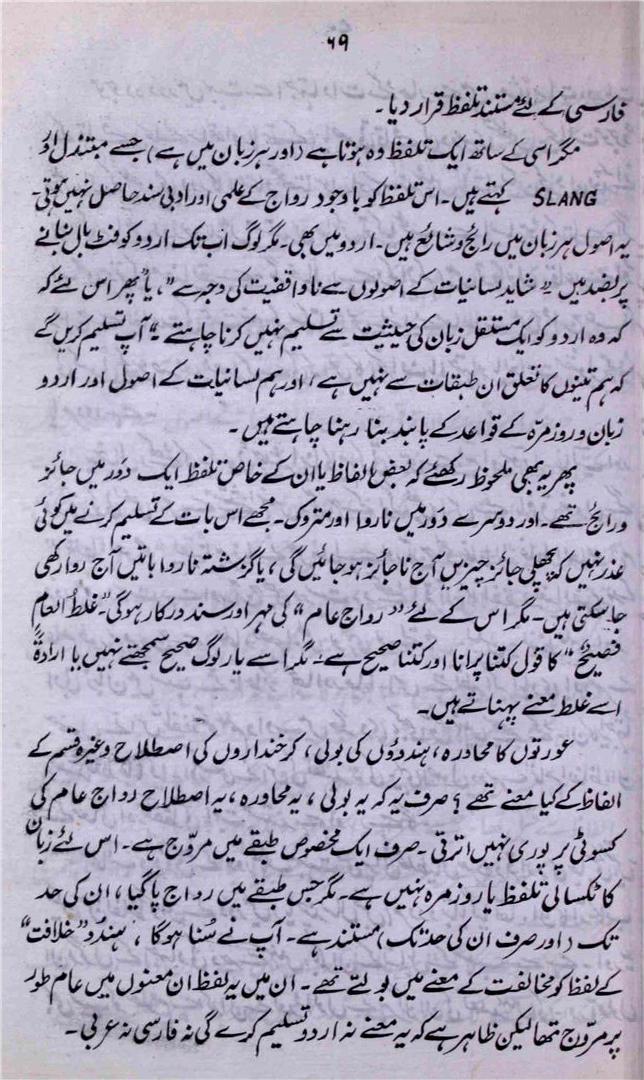 ۶۹
فارسی کے لئے مستند تلفظ قرار دیا۔
مگر اسی کے ساتھ ایک تلفظ وہ ہوتا ہے (اور ہر زبان میں ہے) جسے مبتذل اور
SLANG کہتے ہیں۔ اس تلفظ کو باوجود رواج کے علمی اور ادبی سند حاصل نہیں ہوتی۔
یہ اصول ہر زبان میں رائج و شائع ہیں۔ اردو میں بھی۔ مگر لوگ اب تک اردو کو فٹ بال بنانے
پر بضد ہیں "شاید لسانیات کے اصولوں سے ناواقفیت کی وجہ سے"، یا "پھر اس لئے کہ
کہ وہ اردو کو ایک مستقل زبان کی حیثیت سے تسلیم نہیں کرنا چاہتے"۔ آپ تسلیم کریں گے
کہ ہم تینوں کا تعلق ان طبقات سے نہیں ہے، اور ہم لسانیات کے اصول اور اردو
زبان و روز مرّہ کے قواعد کے پابند بنا رہنا چاہتے ہیں۔
پھر یہ بھی ملحوظ رکھئے کہ بعض الفاظ یا ان کے خاص تلفظ ایک دَور میں جائز
و رائج تھے۔ اور دوسرے دَور میں ناروا اور متروک۔ مجھے اس بات کے تسلیم کرنے میں کوئی
عذر نہیں کہ پچھلی جائز چیزیں آج ناجائز ہو جائیں گی، یا گزشتہ ناروا باتیں آج روا رکھی
جا سکتی ہیں۔ مگر اس کے لئے "رواجِ عام" کی مہر اور سند درکار ہوگی۔ "غلطُ العام
فصیحٌ" کا قول کتنا پرانا اور کتنا صحیح ہے۔ مگر اسے یار لوگ صحیح سمجھتے نہیں یا ارادۃً
اسے غلط معنے پہناتے ہیں۔
عورتوں کا محاورہ، ہندوُوں کی بولی، کرخنداروں کی اصطلاح وغیرہ قسم کے
الفاظ کے کیا معنے تھے؟ صرف یہ کہ یہ بولی، یہ محاورہ، یہ اصطلاح رواج عام کی
کسوٹی پر پوری نہیں اترتی۔ صرف ایک مخصوص طبقے میں مروّج ہے۔ اس لئے زبان
کا ٹکسالی تلفظ یا روز مرہ نہیں ہے۔ مگر جس طبقے میں رواج پا گیا، ان کی حد
تک (اور صرف ان کی حد تک) مستند ہے۔ آپ نے سُنا ہوگا، ہندوُ "خلافت"
کے لفظ کو مخالفت کے معنے میں بولتے تھے۔ ان میں یہ لفظ ان معنوں میں عام طور
پر مروّج تھا لیکن ظاہر ہے کہ یہ معنے نہ اردو تسلیم کرے گی نہ فارسی نہ عربی۔